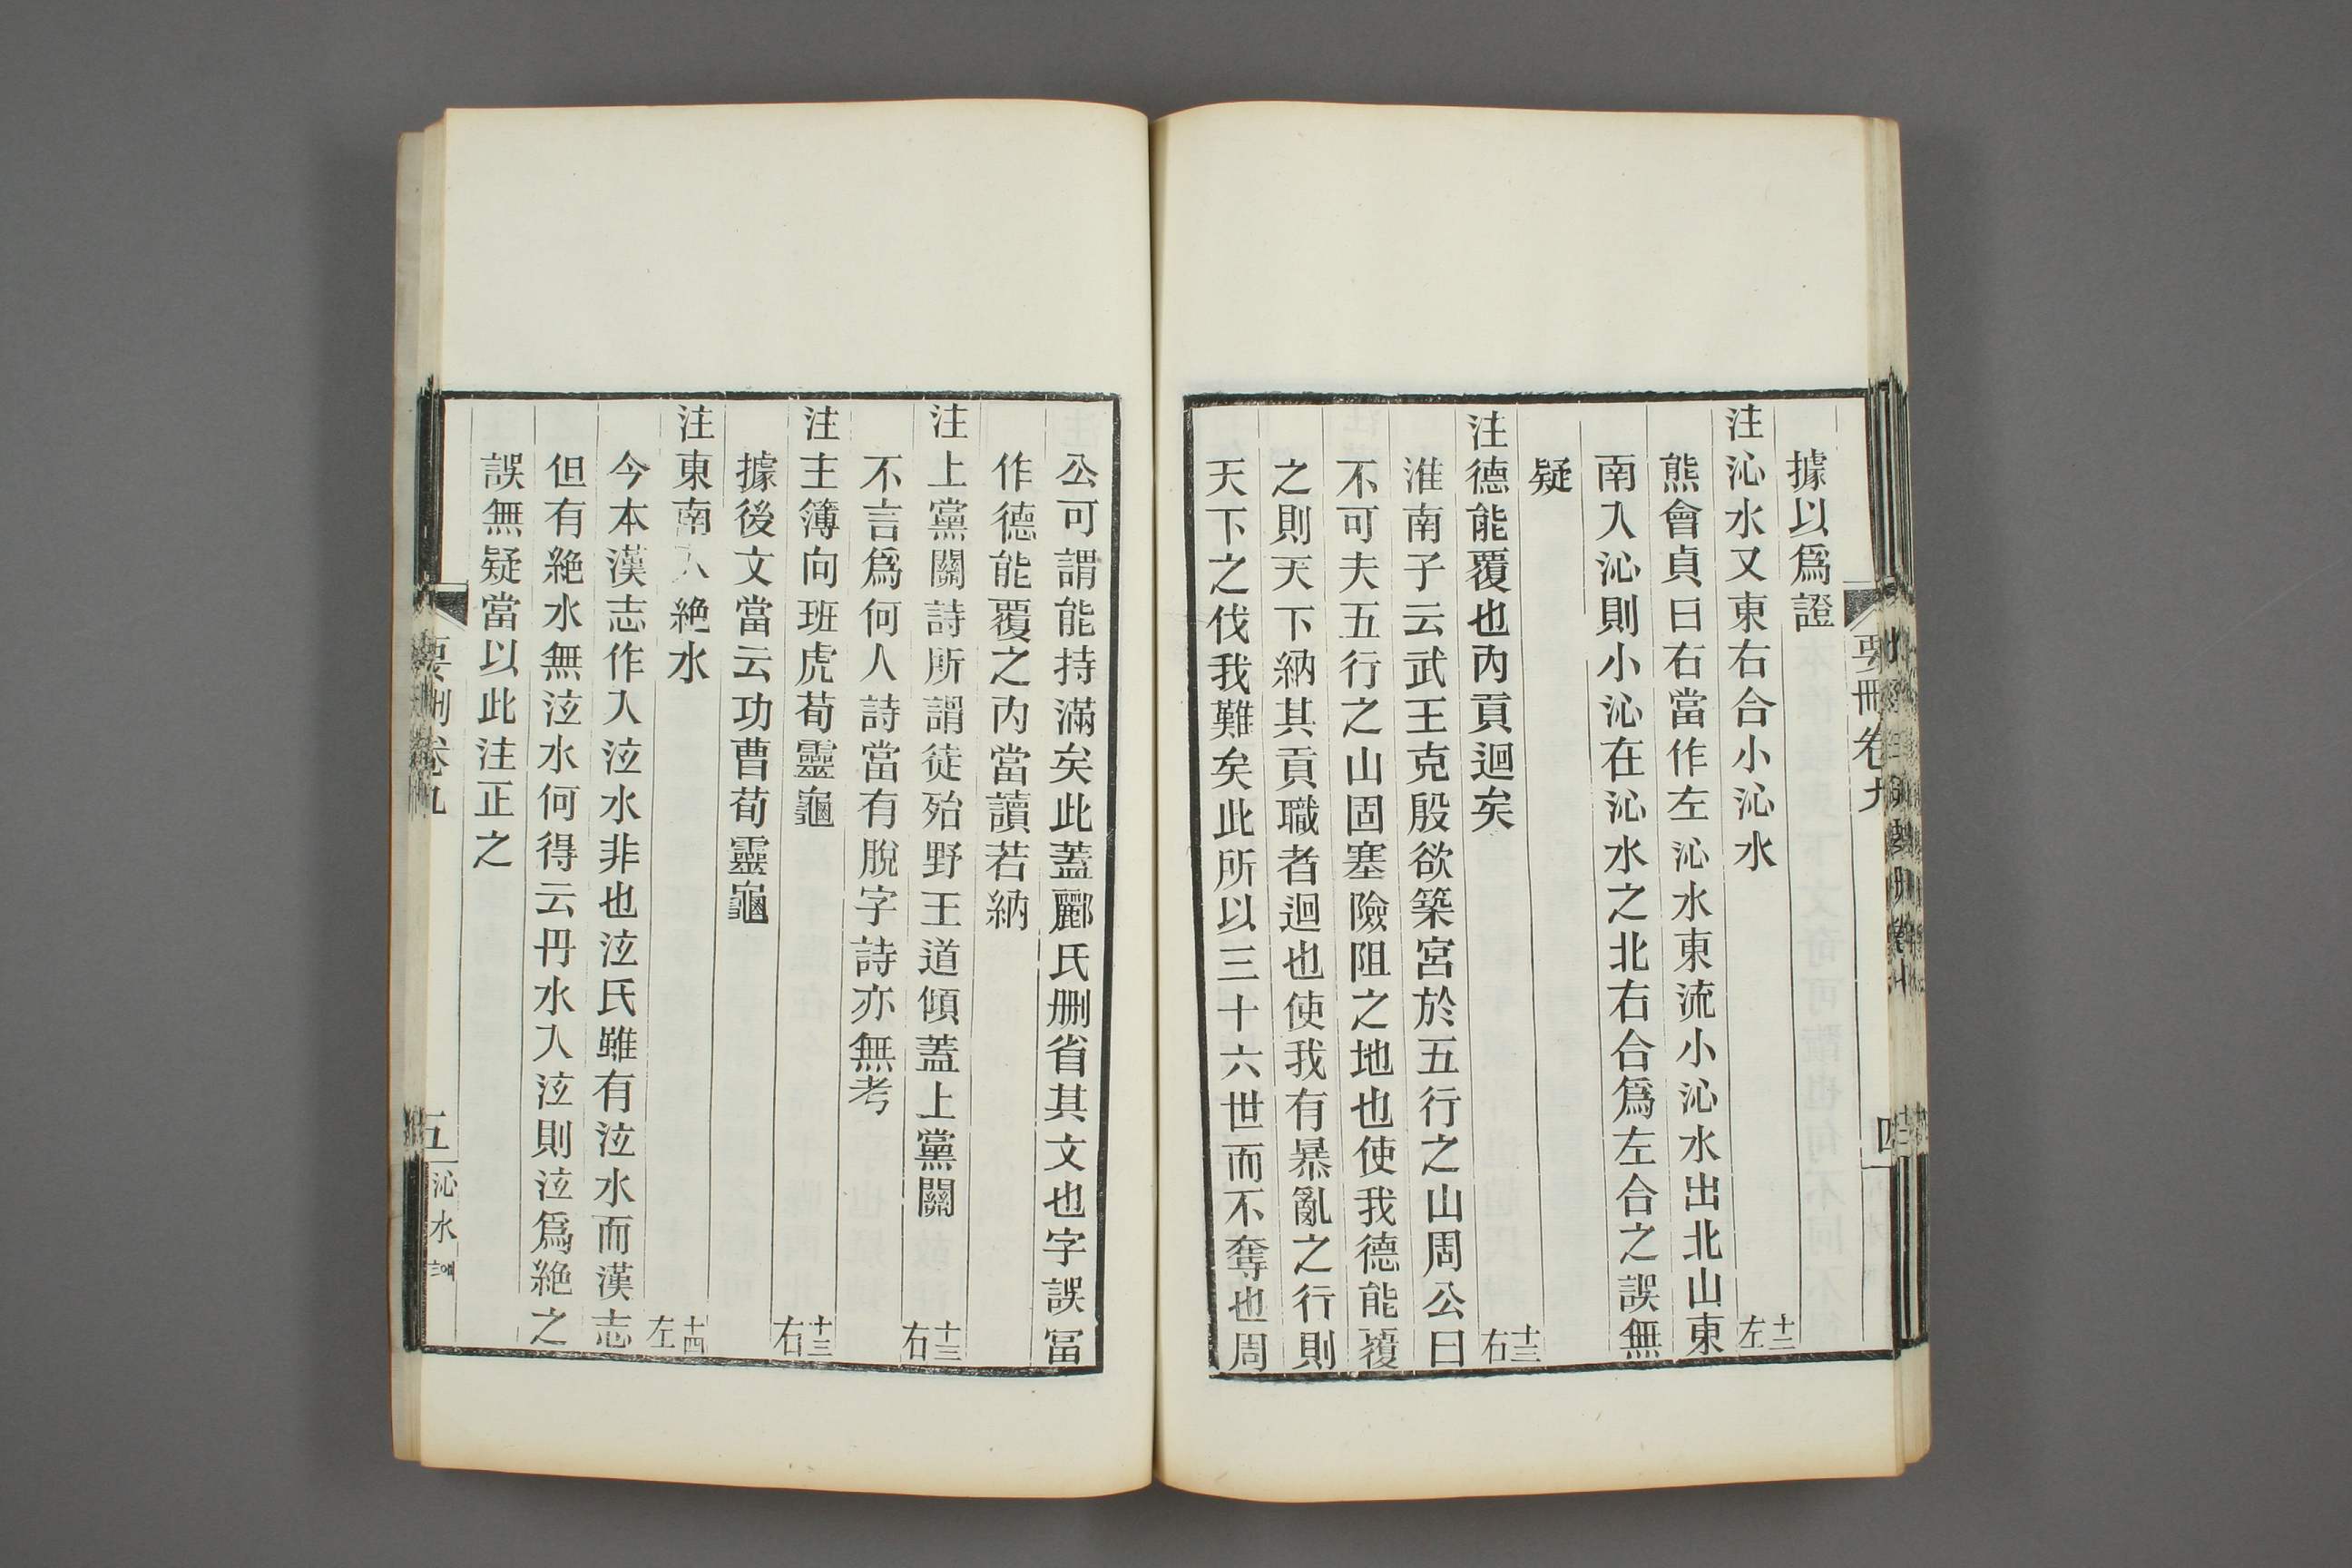 據以爲證
注沁水又東右合小沁水 十二左
熊會貞曰右當作左沁水東流小沁水出北山東
南入沁則小沁在沁水之北右合爲左合之誤無
疑
注德能覆也內貢迴矣 十三右
淮南子云武王克殷欲築宮於五行之山周公曰
不可夫五行之山固塞險阻之地也使我德能覆
之則天下納其貢職者迴也使我有暴亂之行則
天下之伐我難矣此所以三十六世而不奪也周
要删卷九
四
公可謂能持滿矣此蓋酈氏刪省其文也字誤冨
作德能覆之內當讀若納
注上黨關詩所謂徒殆野王道傾蓋上黨關 十三右
不言爲何人詩當有脫字詩亦無考
注主簿向班虎荀靈龜 十三右
據後文當云功曹荀靈龜
注東南入絶水 十四左
今本漢志作入泫水非也泫氏雖有泫水而漢志
但有絶水無泫水何得云丹水入泫則泫爲絶之
誤無疑當以此注正之
要删卷九
五
沁水